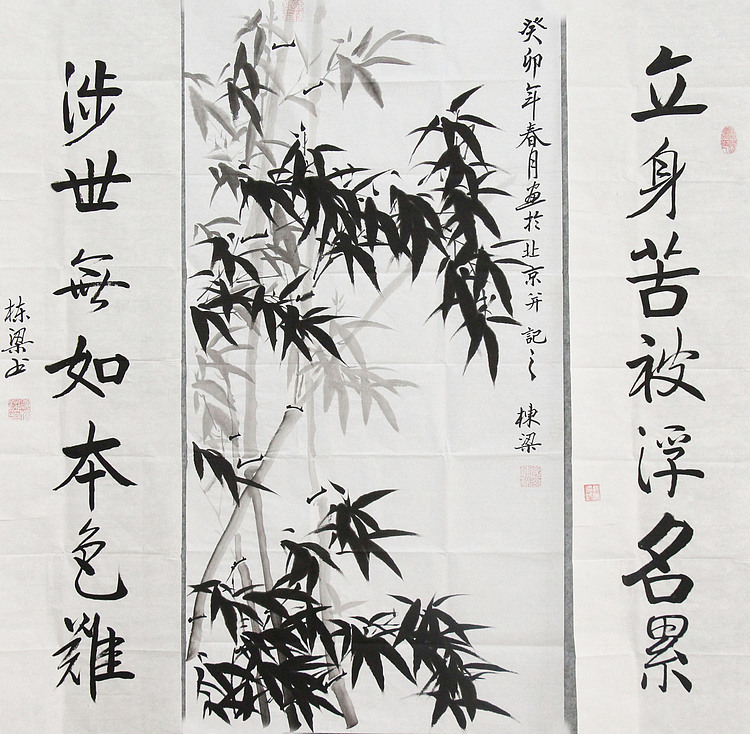 立身苦被浮名累
癸卯年春月画於北京并記之
棟梁
涉世無如本色難
栋梁书